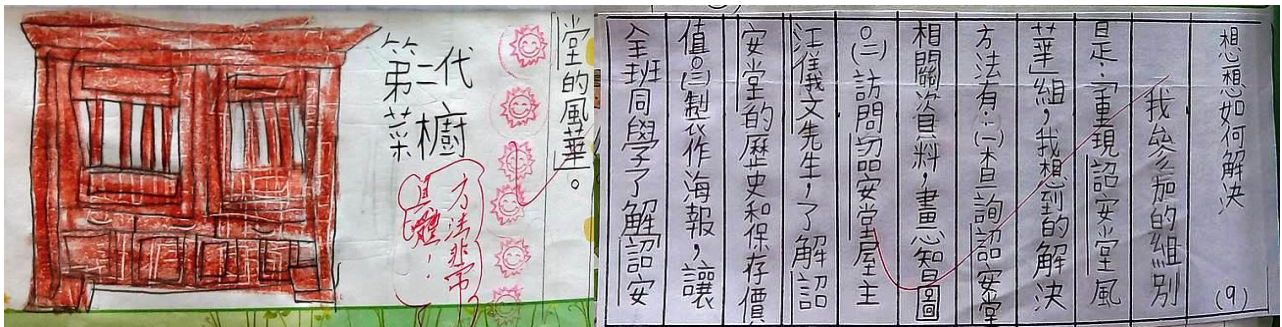 想想如何解決
(9)
我參加的組別
是：「重現詔安堂風
華」組，我想到的解決
方法有：(一)查詢詔安堂
相關資料，畫心智圖
。(二)訪問詔安堂屋主
汪義文先生，了解詔
安堂的歷史和保存價
值。(三)製作海報，讓
全班同學了解詔安
堂的風華。
第二代
菜櫥
方法非常
具體！